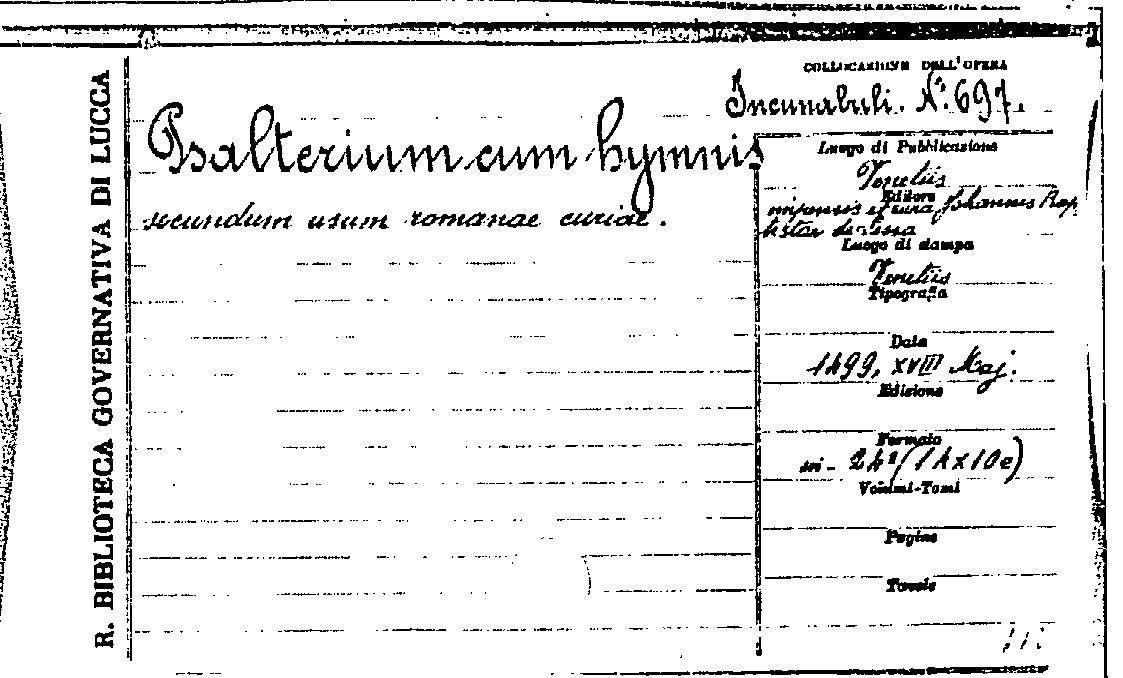 R. BIBLIOTECA GOVERNATIVA DI LUCCA
COLLOCAZIONE DELL'OPERA
Incunabuli. N.º 697.
Psalterium cum hymnis
secundum usum romanae curiae.
Luogo di Pubblicazione
Venetiis
Editore
Johannis Bap
tistae de Sessa
Luogo di stampa
Venetiis
Tipografia
Data
1499, XVIII Maj.
Edizione
Formato
in-24º (14x10c)
Volumi-Tomi
Pagine
Tavole